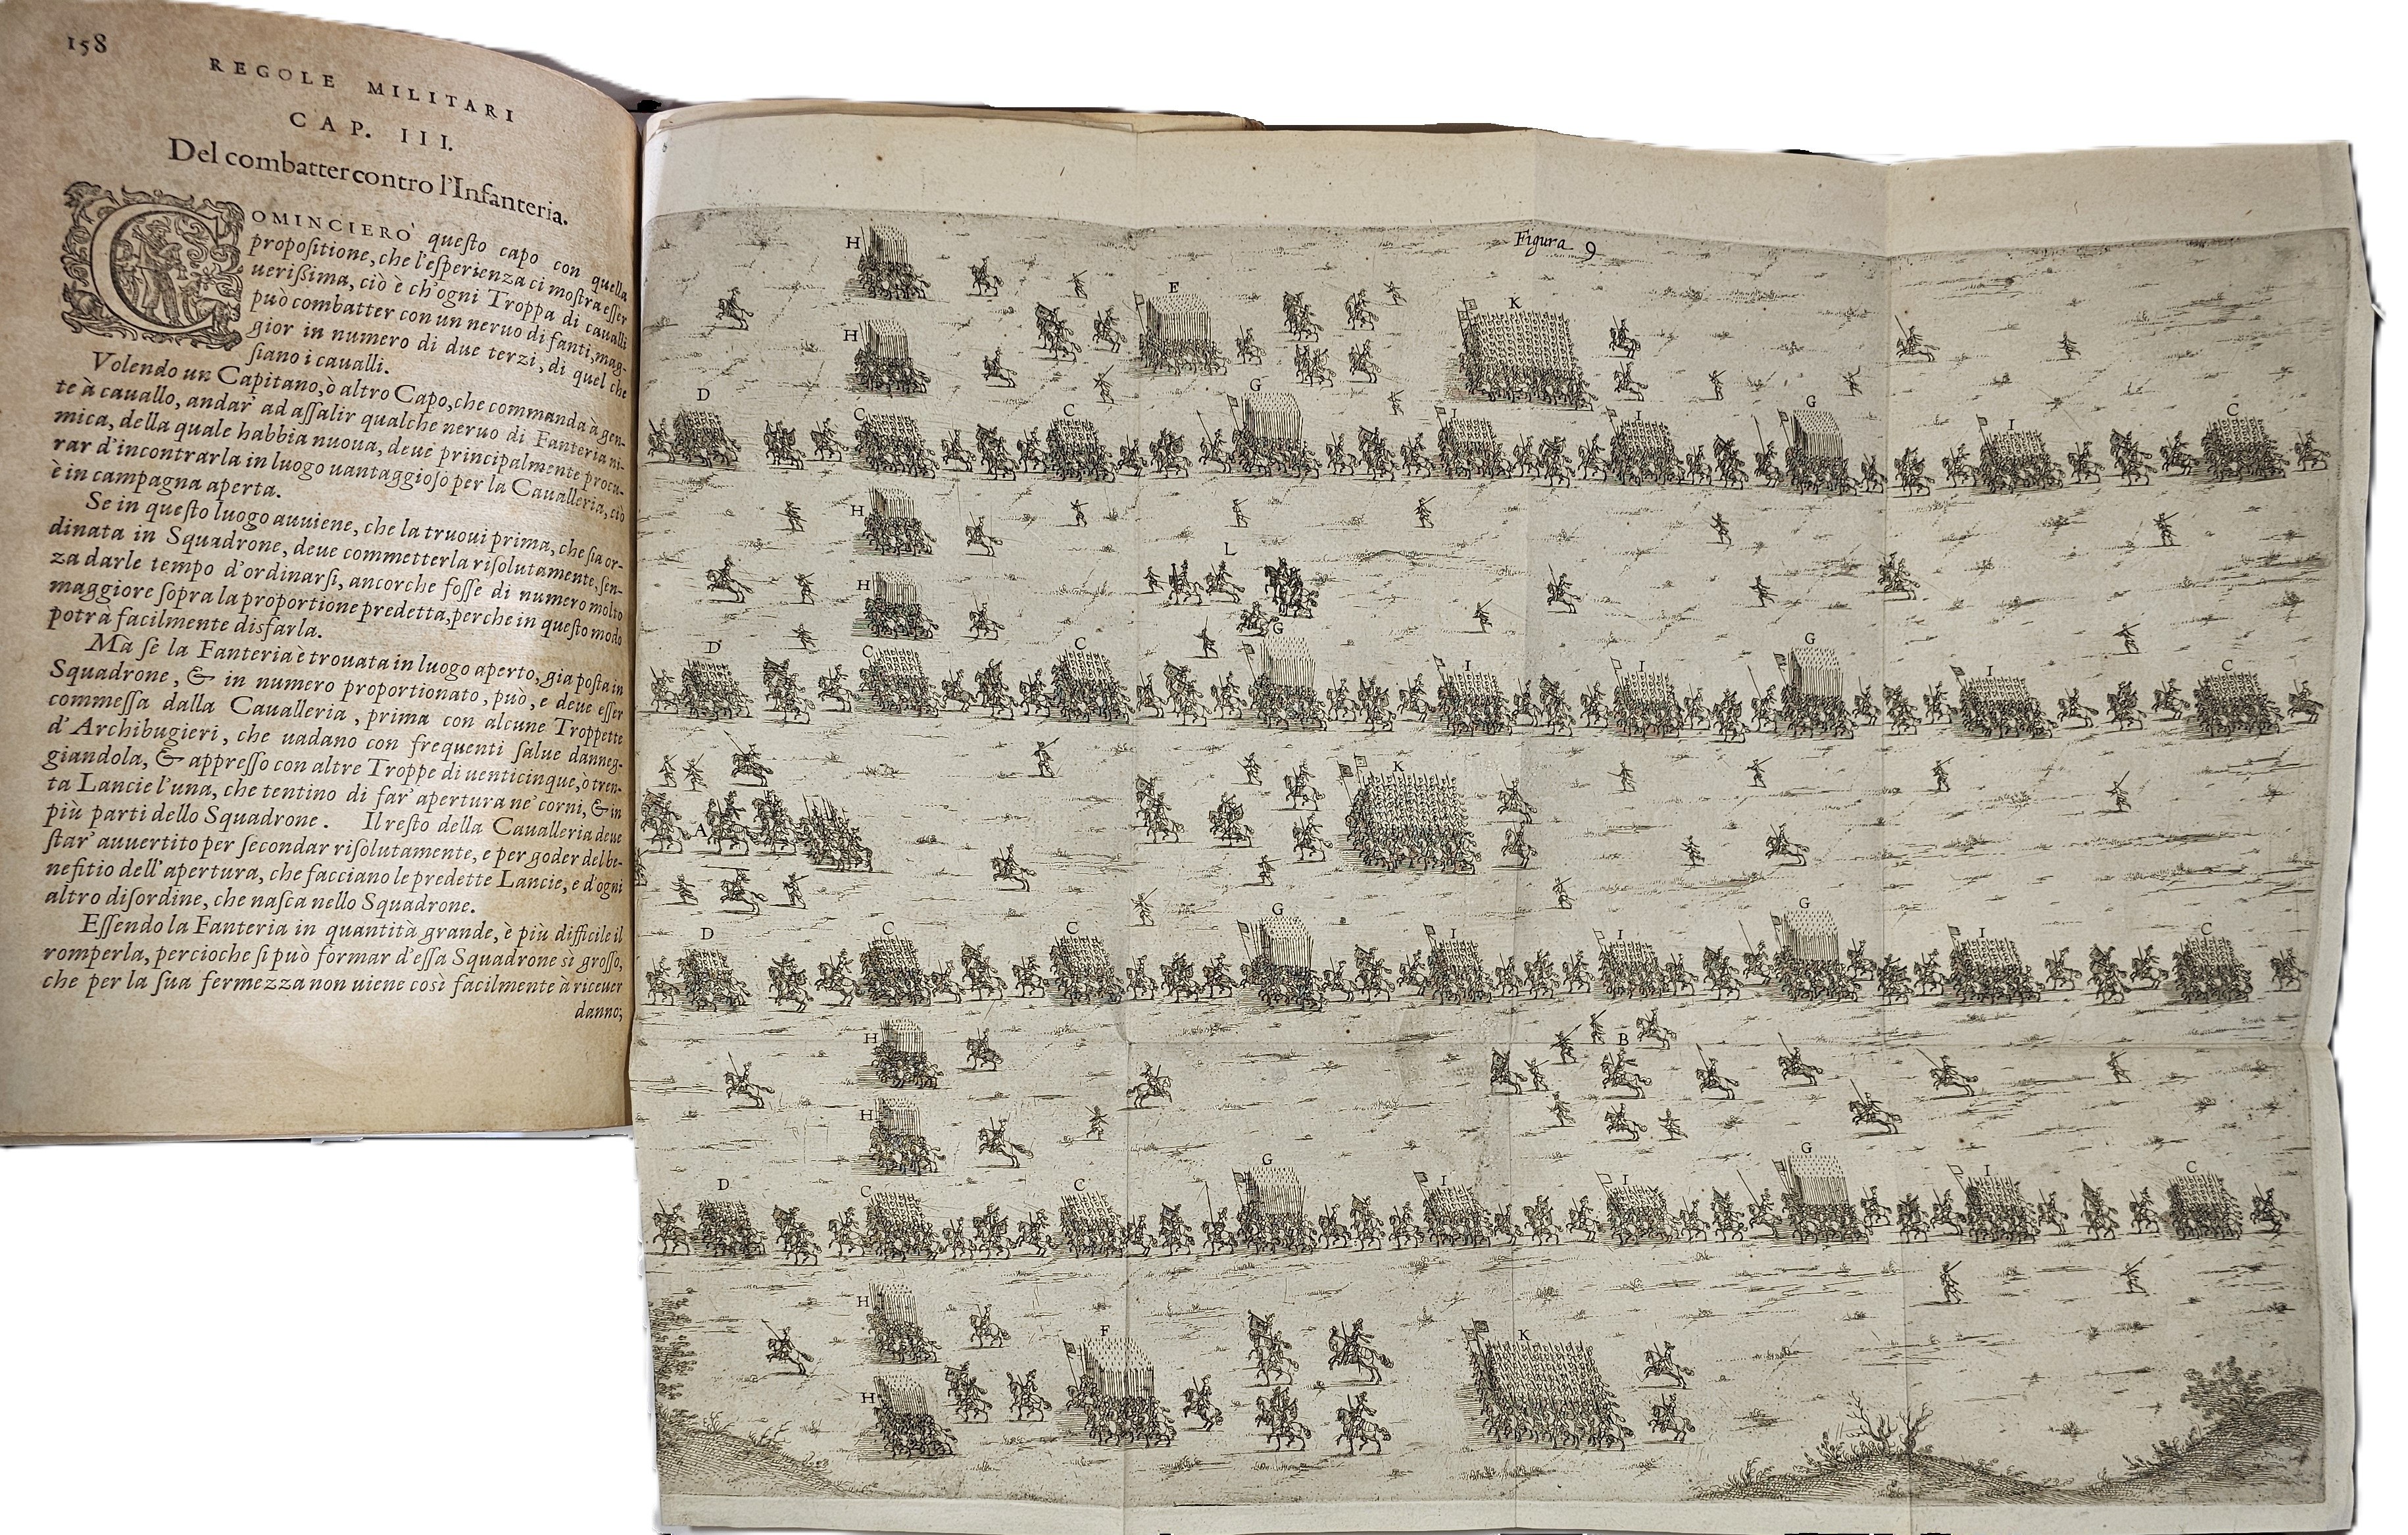 158
REGOLE MILITARI
CAP. III.
Del combatter contro l'Infanteria.
COMINCIERO' queſto capo con quella
propoſitione, che l'eſperienza ci moſtra eſſer
ueriſſima, ciò è ch'ogni Troppa di caualli
può combatter con un neruo di fanti, mag-
gior in numero di due terzi, di quel che
ſiano i caualli.
Volendo un Capitano, ò altro Capo, che commanda à gen-
te à cauallo, andar' ad aſſalir qualche neruo di Fanteria ni-
mica, della quale habbia nuoua, deue principalmente procu-
rar d'incontrarla in luogo uantaggioſo per la Caualleria, ciò
è in campagna aperta.
Se in queſto luogo auuiene, che la truoui prima, che ſia or-
dinata in Squadrone, deue commetterla riſolutamente, ſen-
za darle tempo d'ordinarſi, ancorche foſſe di numero molto
maggiore ſopra la proportione predetta, perche in queſto modo
potrà facilmente disfarla.
Mà ſè la Fanteria è trouata in luogo aperto, gia poſta in
Squadrone, & in numero proportionato, può, e deue eſſer
commeſſa dalla Caualleria, prima con alcune Troppette
d'Archibugieri, che uadano con frequenti ſalue danneg-
giandola, & appreſſo con altre Troppe di uenticinque, ò tren-
ta Lancie l'una, che tentino di far' apertura ne' corni, & in
più parti dello Squadrone. Il reſto della Caualleria deue
ſtar' auuertito per ſecondar riſolutamente, e per goder del be-
nefitio dell'apertura, che facciano le predette Lancie, e d'ogni
altro diſordine, che naſca nello Squadrone.
Eſſendo la Fanteria in quantità grande, è più difficile il
romperla, percioche ſi può formar d'eſſa Squadrone sì groſſo,
che per la ſua fermezza non uiene così facilmente à riceuer
danno;
Figura 9
H
E
K
H
D C C G I I G I C
H
L
H
G
D C C I I G I C
K
A
D C C G I I G I C
H
B
H
D C C G I I G I C
H
F
K
H